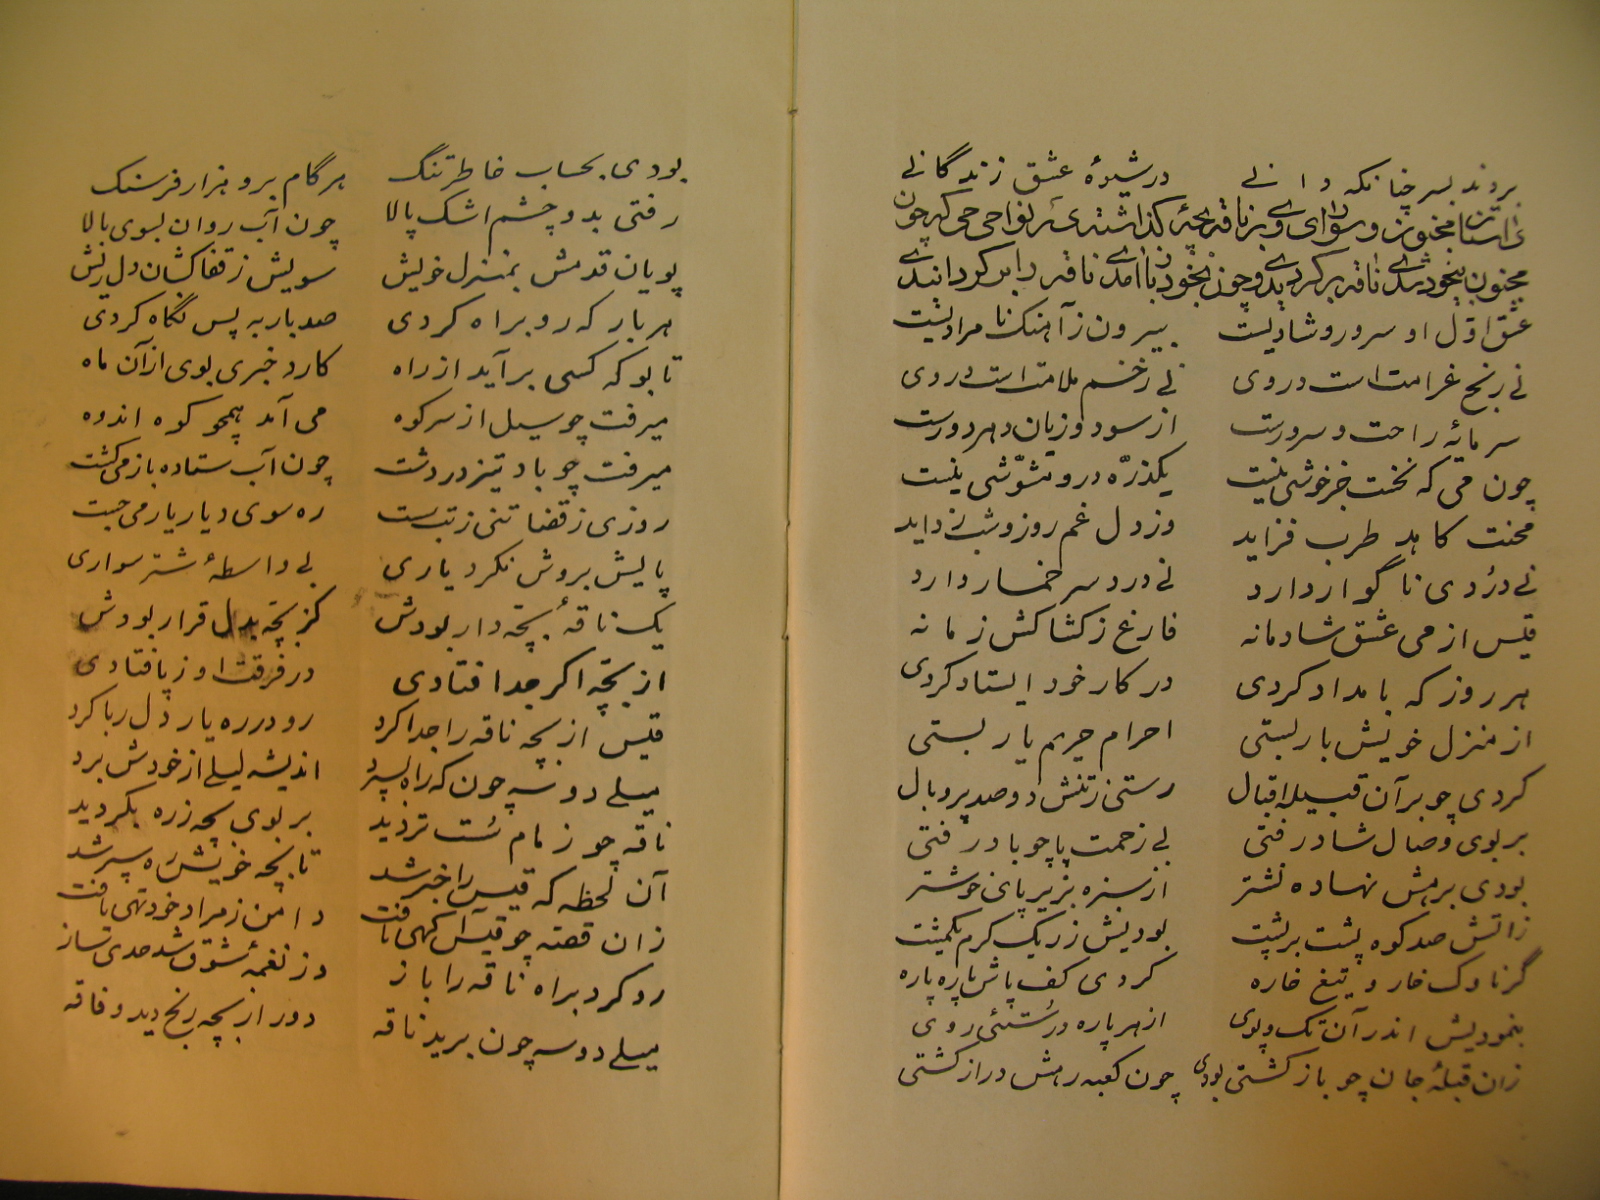 بردند بسر چنانکه دانی در شیوهٔ عشق زندگانی
داستان مجنون و سوار شدن وی بر ناقه بچه گذاشته در نواحی حی که چون
مجنون بیخود شدی ناقه برگردیدی و چون بخود باز آمدی ناقه را برگردانیدی
عشق اول او سرور و شادیست بیرون ز آهنک نامرادیست
نی رنج غرامت است در وی نی زخم ملامت است در وی
سرمایهٔ راحت و سرورست از سود و زیان دهر دورست
چون می که نخست جز خوشی نیست یکذرّه درو مشوّشی نیست
محنت کاهد طرب فزاید وز دل غم روز و شب زداید
نی دُردی ناگوار دارد نی درد سر خمار دارد
قیس از می عشق شادمانه فارغ ز کشاکش زمانه
هر روز که بامداد کردی در کار خود ایستاد کردی
از منزل خویش بار بستی احرام حریم یار بستی
کردی چو بر آن قبیله اقبال رستی ز تنش دو صد پر و بال
بر بوی وصال شاد رفتی بی زحمت پا چو باد رفتی
بودی برهش نهاده نشتر از سبزه بزیر پای خوشتر
ز آتش صد کوه پشت بر پشت بودیش ز ریک کرم یکمشت
گر ناوک خار و تیغ خاره کردی کف پاش پاره پاره
بنمودیش اندر آن تک و پوی از هر پاره درستئی روی
زان قبلهٔ جان چو باز گشتی بودی چون کعبه رهش دراز گشتی
بودی بحساب خاطر تنگ هر گام برو هزار فرسنک
رفتی بد و چشم اشک پالا چون آب روان بسوی بالا
پویان قدمش بمنزل خویش سویش ز قفا کشان دل ریش
هر بار که رو براه کردی صد بار به پس نگاه کردی
تا بو که کسی برآید از راه کارد خبری بوی از آن ماه
میرفت چو سیل از سر کوه می آمد همچو کوه اندوه
میرفت چو باد تیز در دشت چون آب ستاده باز می کشت
روزی ز قضا تنی ز تب سست ره سوی دیار یار می جست
پایش بروش نکرد یاری بی واسطهٔ شتر سواری
یک ناقهٔ بچه دار بودش کز بچه بدل قرار بودش
از بچه اکر جدا فتادی در فرقت او ز پا فتادی
قیس از بچه ناقه را جدا کرد رو در ره یار دل ربا کرد
میلی دو سه چون که راه بسپرد اندیشه لیلی از خودش برد
ناقه چو زمام سست تر دید بر بوی بچه ز ره بگردید
آن لحظه که قیس را خبر شد تا بچه خویش ره بسر شد
زان قصه چو قیس آکهی یافت دامن ز مراد خود تهی یافت
رو کرد براه ناقه را باز وز نغمهٔ شوق شد حدی ساز
میلی دو سه چون برید ناقه دور از بچه رنج دید و فاقه